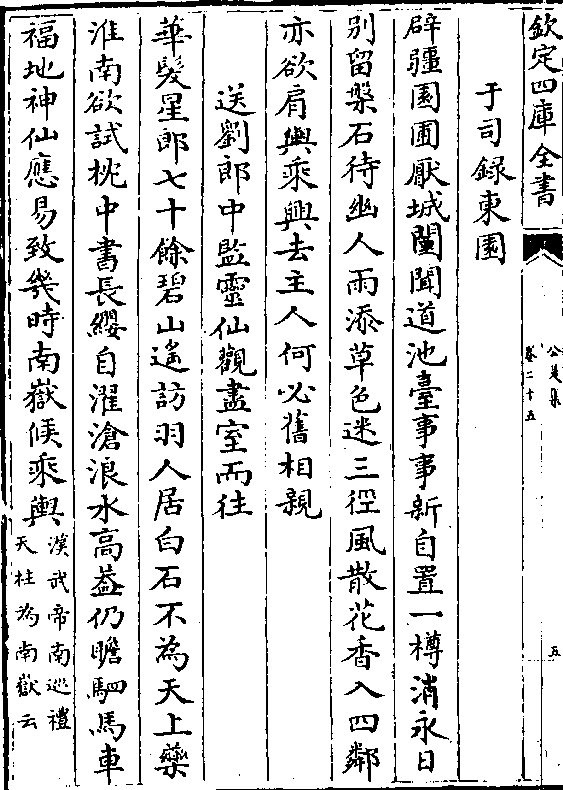 欽定四庫全書
公是集
卷二十五
五
于司録東園
辟疆園圃厭城闉聞道池臺事事新自置一樽消永日
别留槃石待幽人雨添草色迷三徑風散花香入四鄰
亦欲肩輿乘興去主人何必舊相親
送劉郎中監靈仙觀盡室而往
華髪星郎七十餘碧山遙訪羽人居白石不為天上藥
淮南欲試枕中書長纓自濯滄浪水髙葢仍瞻駟馬車
福地神仙應易致幾時南嶽候乘輿漢武帝南廵禮
天柱為南嶽云